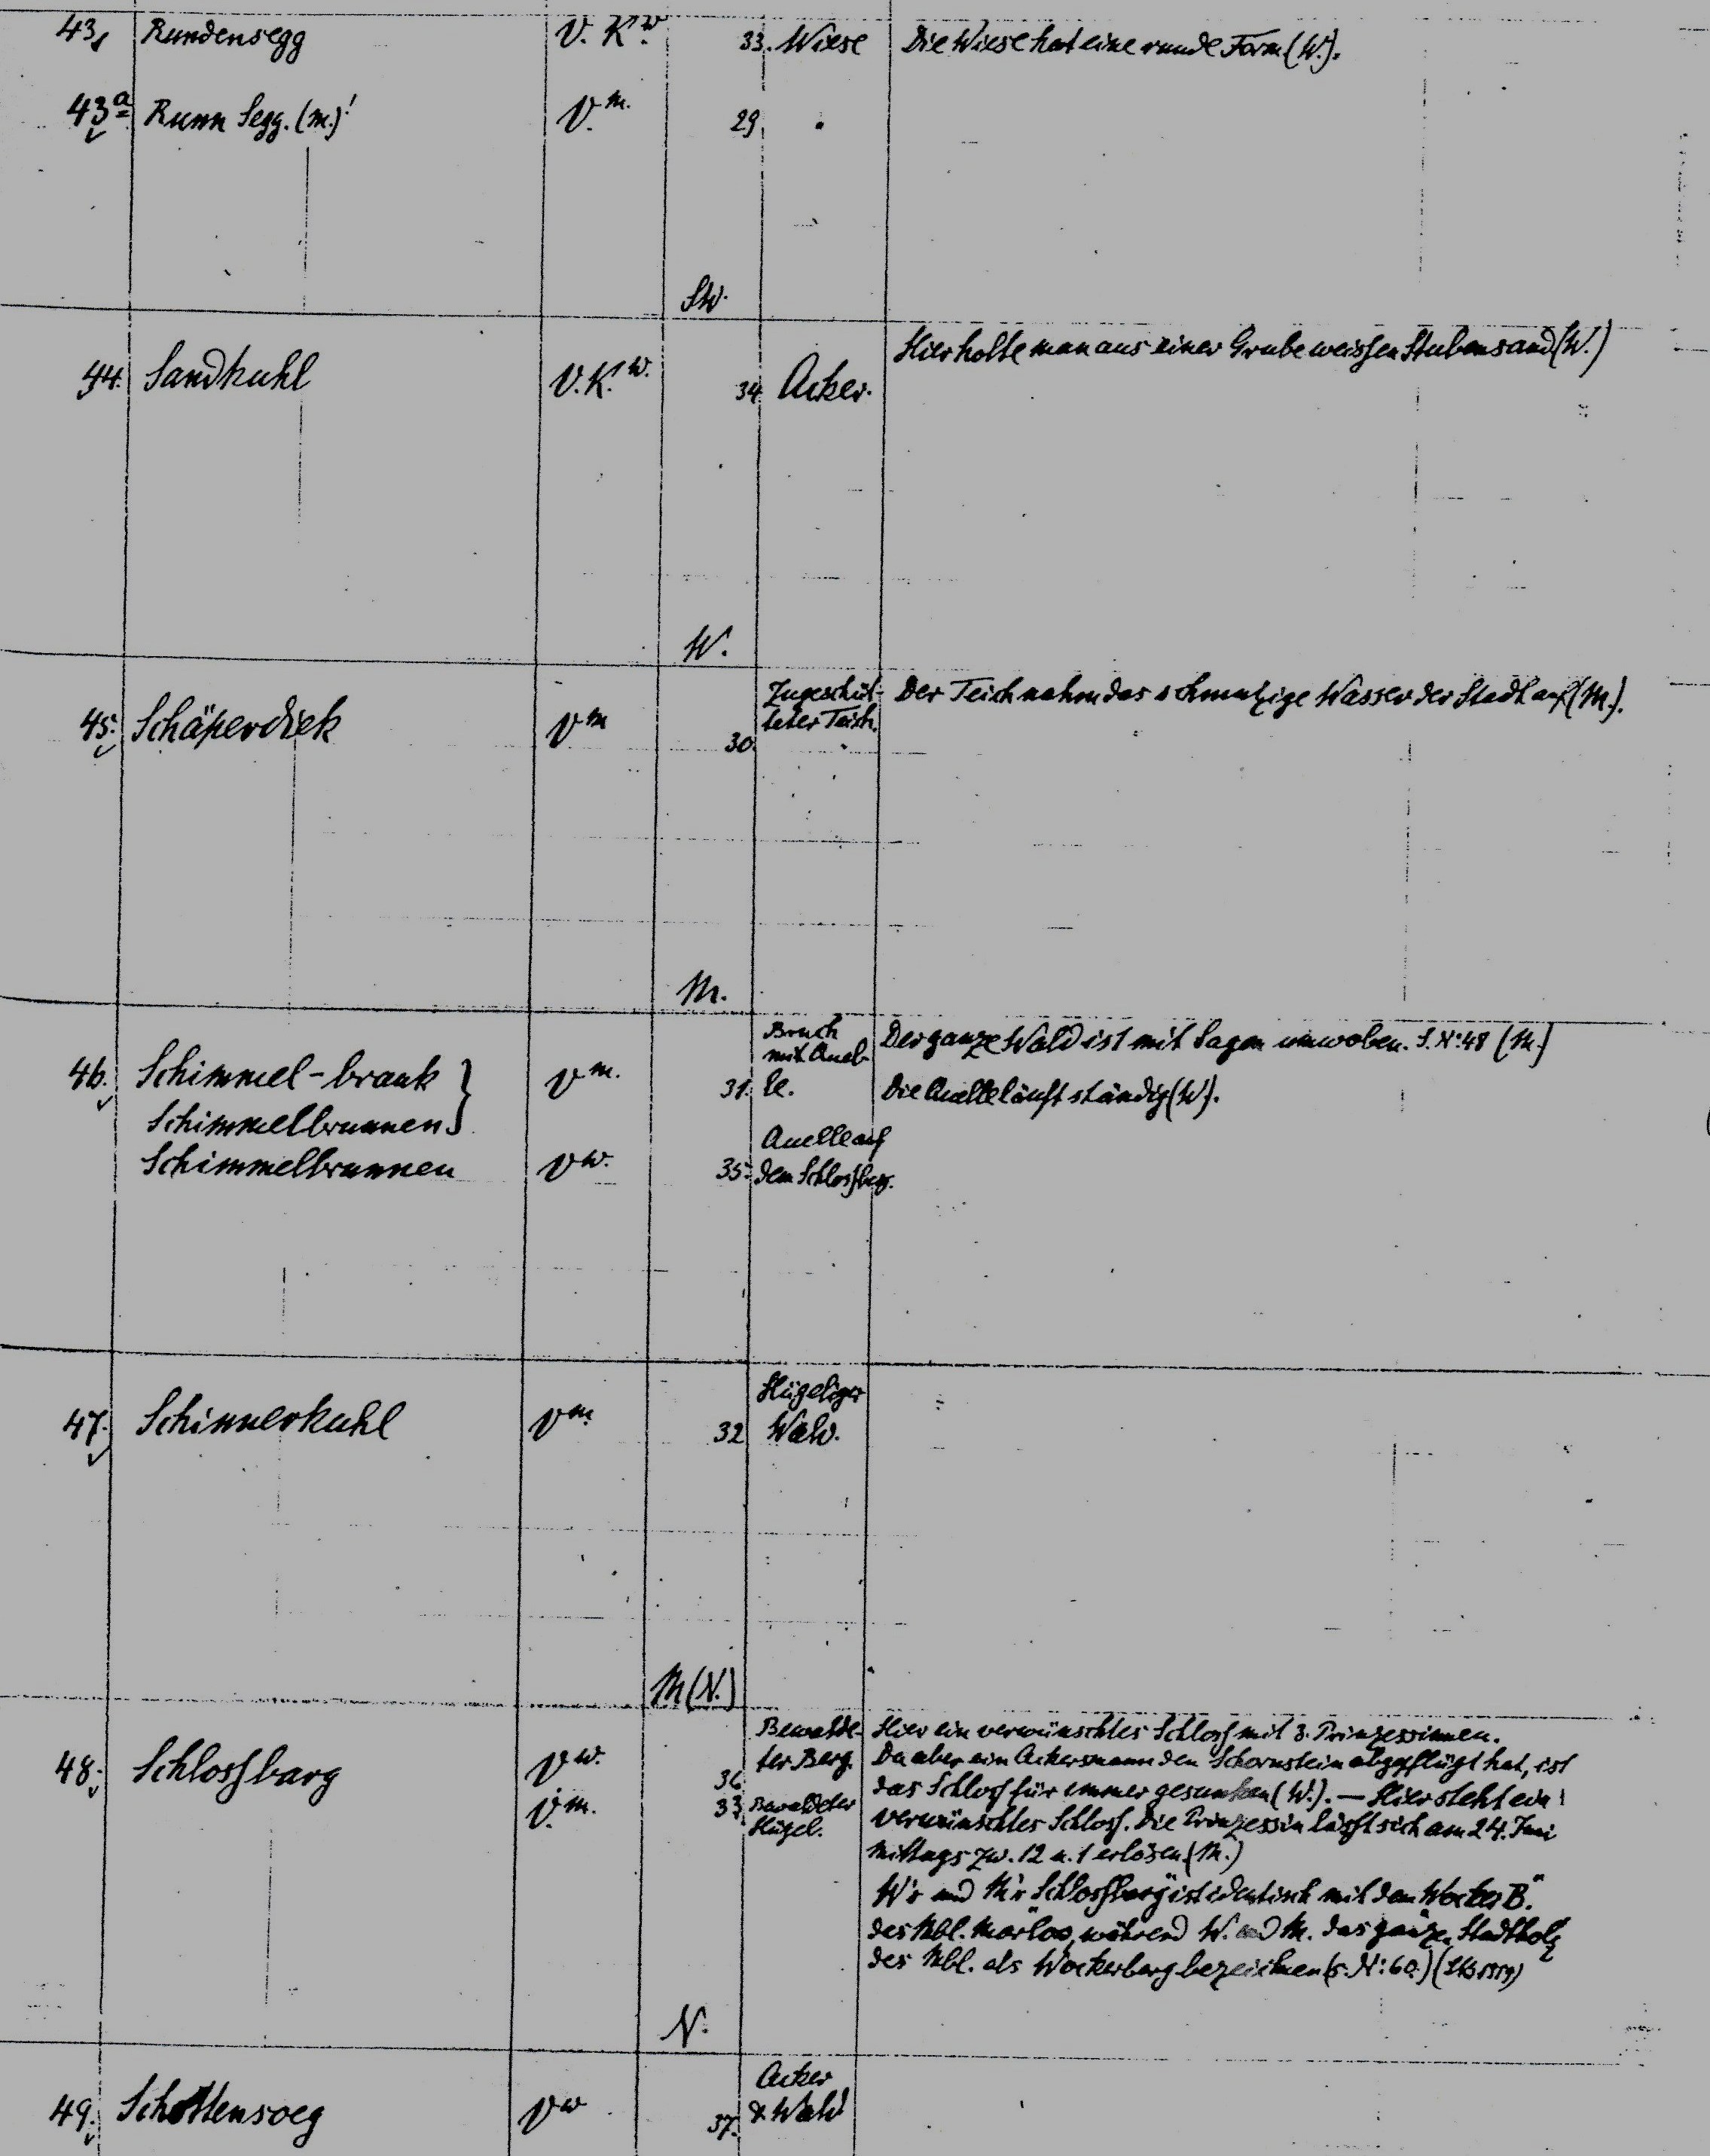 43. Rundensegg V. K. W. 33. Wiese Die Wiese hat eine runde Form (W.).
43a Runn Segg. (m.)! V. m. 29.
SW.
Hier holte man aus einer Grube weissen Stubensand (W.)
44. Sandkuhl V. K. W. 34 Acker.
W.
Zugeschüt- Der Teich nahm das schmutzige Wasser der Stadt auf (M.).
45. Schäperdiek V m 30. teter Teich.
M.
Bruch Der ganze Wald ist mit Sagen umwoben. S. N: 48 (M.)
mit Quel-
46. Schimmel-brauk } V m. 31. le. Die Quelle läuft ständig (W).
Schimmelbrunnen }
Quelle auf
Schimmelbrunnen V W. 35. dem Schlossberg.
Hügeliger
47. Schinnerkuhl V m. 32 Wald.
M (N.)
Bewalde- Hier ein verwünschtes Schloss mit 3. Prinzessinnen.
48. Schlossbarg V W. 36 ter Berg. Da aber ein Ackersmann den Schornstein abgepflügt hat, ist
das Schloss für immer gesunken (W.). — Hier steht ein
V. m. 33. Bewaldeter verwünschtes Schloss. Die Prinzessin lässt sich am 24. Juni
Hügel.
Mittags zw. 12 u. 1 erlösen (M.)
W's und M's Schlossbarg ist identisch mit dem Wocker B."
des Mbl. während W. und M. das ganze Stadtholz
des Mbl. als Wockerberg bezeichnen (s. N: 60.)
N.
Acker
49. Schottensoeg V W 37. & Wald